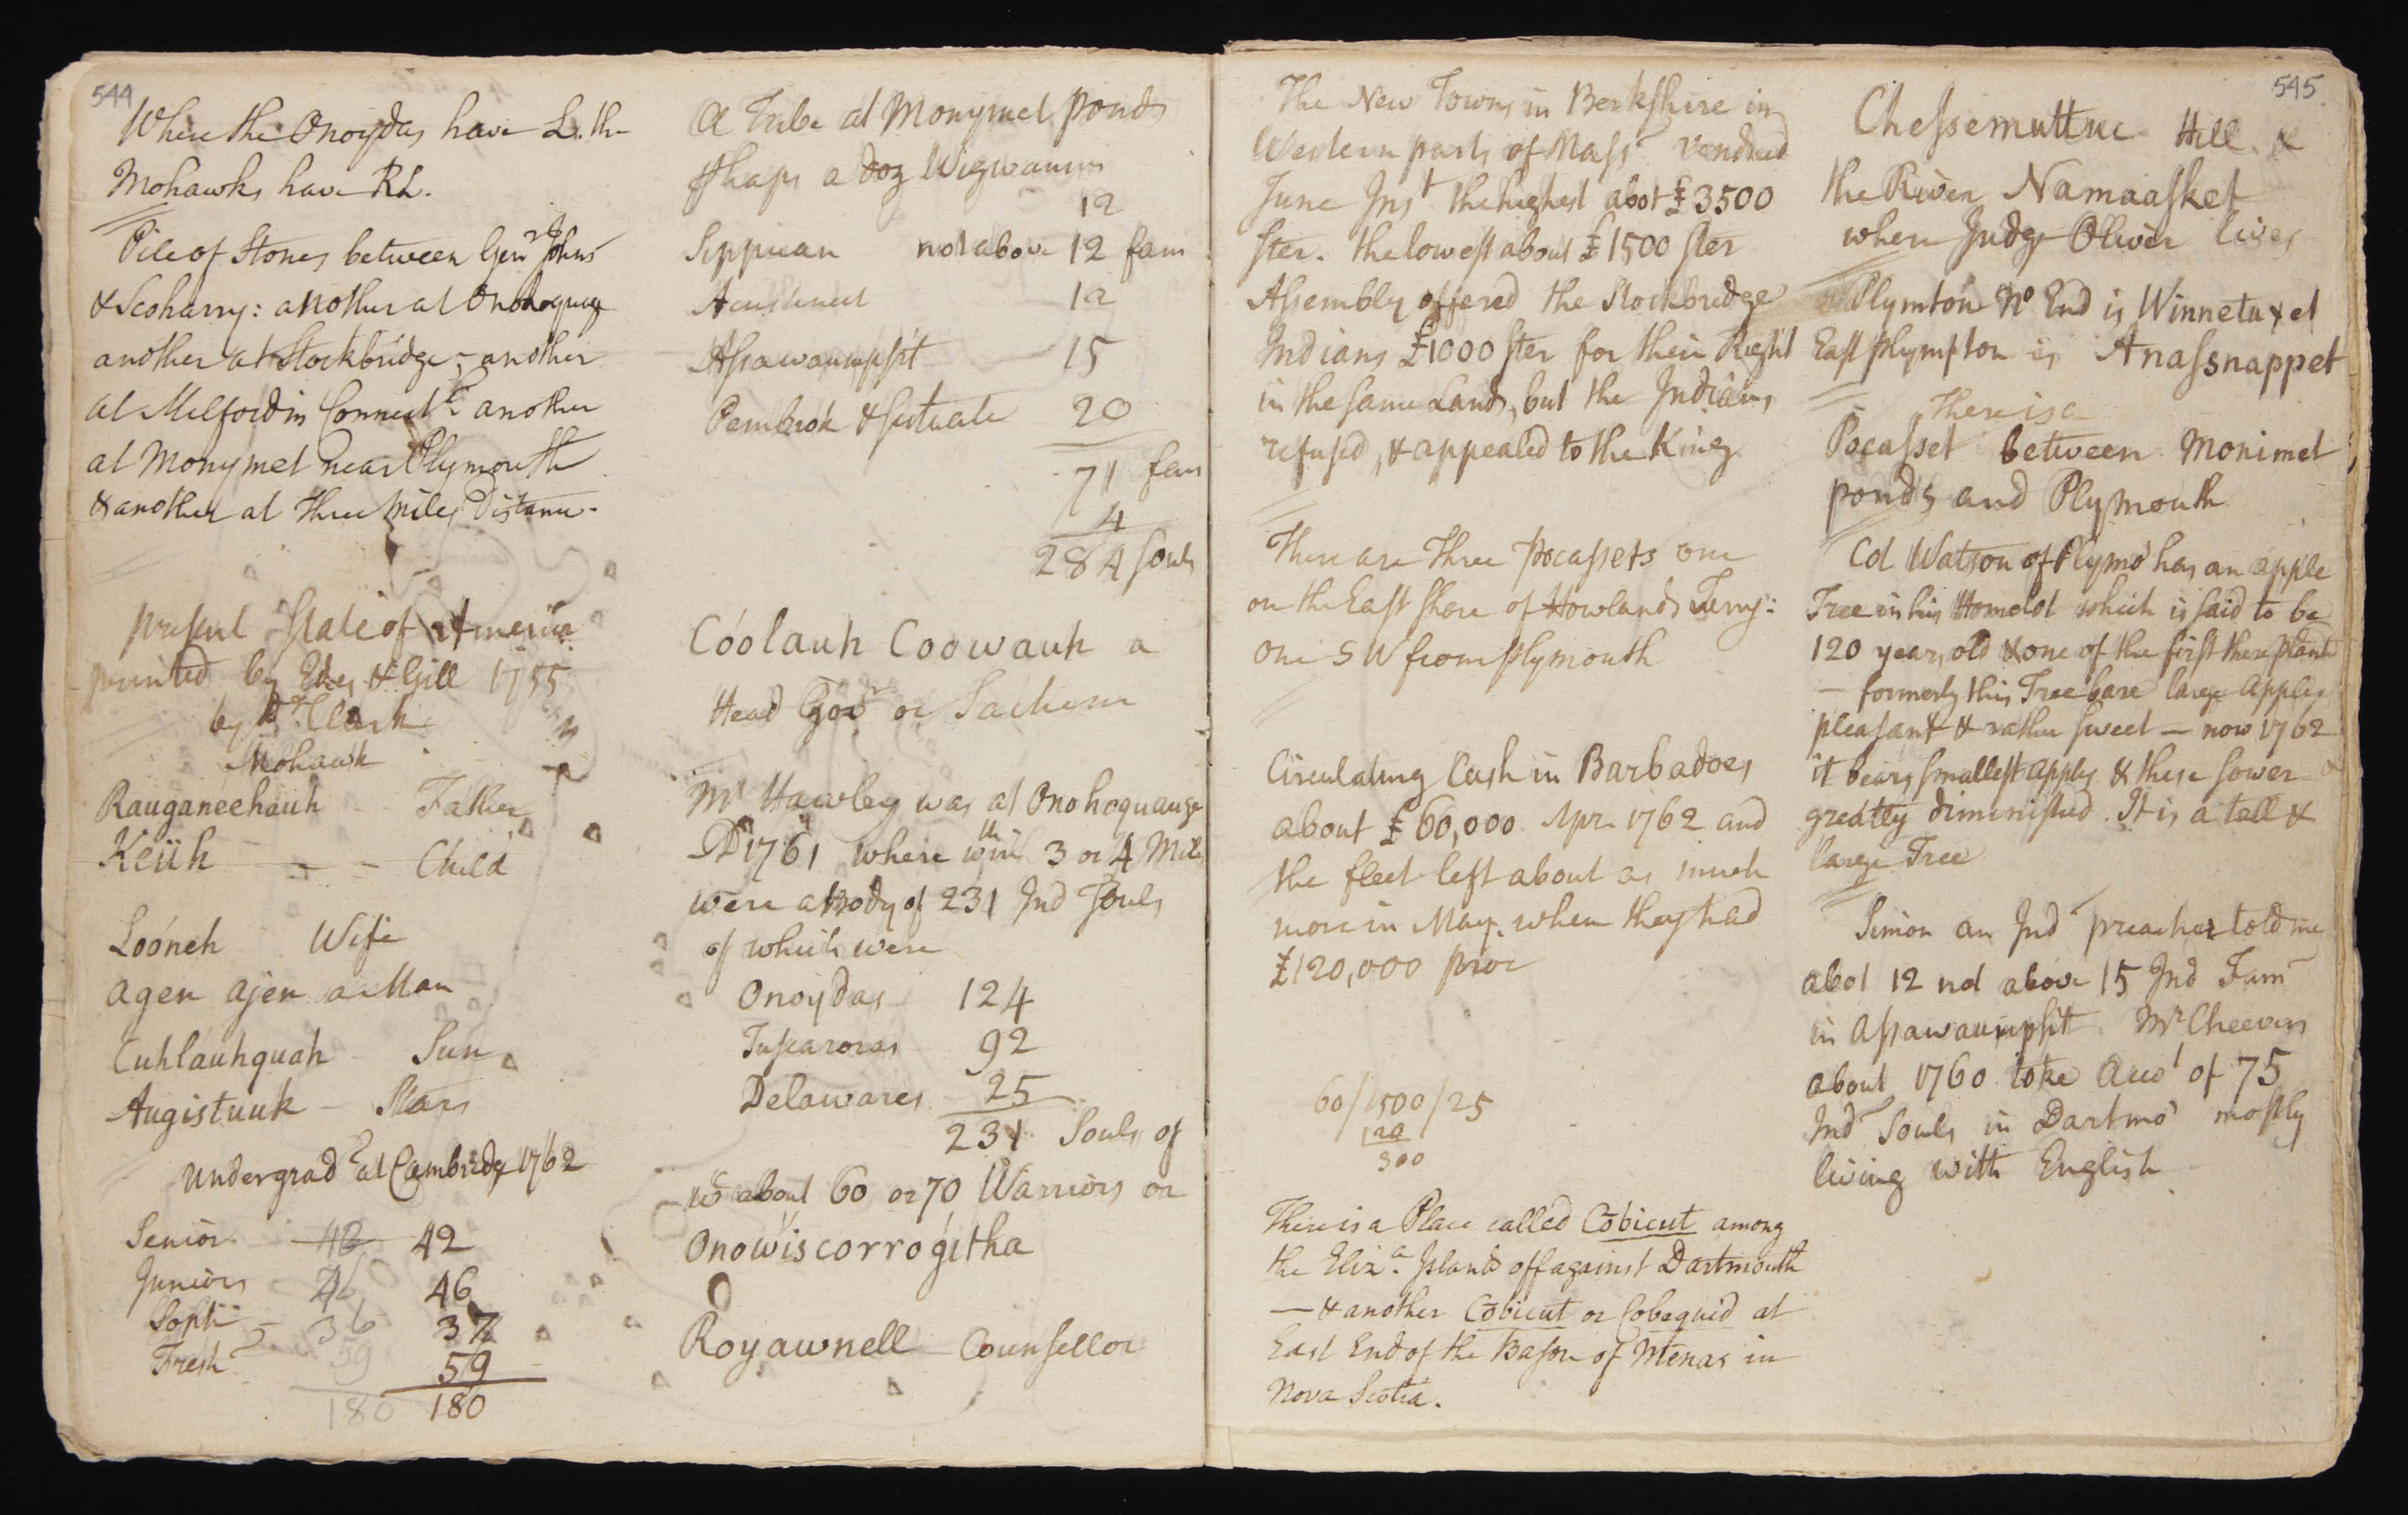 544
Where the Onoydas have L. the
Mohawks have RL.
Pile of Stones between Genl Johns
& Scoharry: another at Onohoquage
another at Stockbridge, – another
at Milford in Connectt another
at Monymet near Plymouth
& another at three miles Distance.
present State of America
printed by Edes & Gill 1755
by Dr Clark
Mohawk
Rauganeehauh Father
Keüh – – Child
Looneh Wife
Agen Ajen a Man
Cuhlauhquah Sun
Augistuuk – Stars
Undergrads at Cambridge 1762
Senior 48 42
Juniors 46 46
Soph 36 37
Fresh 59 59
180 180
A Tribe at Monymet ponds
phaps a doz Wigwaums
12
Sippican not above 12 fam
Acushnet 12
Assawaumpsit 15
Pembrok & Scituate 20
71 fam
4
284 Souls
Cóolauh Coowauh a
Head Govr or Sachem
Mr Hawley was at Onohoquauge
AD 1761 where within 3 or 4 Miles
were a Body of 231 Ind Souls
of which were
Onoydas 124
Tuscaroras 92
Delawares 25
231 Souls of
wc about 60 or 70 Warriors or
Onowiscorrogitha
Royawnell Counsellor
545
The New Towns in Berkshire in
Western parts of Masst vendued
June Inst the highest abot £3500
ster. the lowest about £1500 ster
Assembly offered the Stockbridge
Indians £1000 ster for their Right
in the same Lands, but the Indians
refused, & appealed to the King
There are three pocassets one
on the East Shore of Howlands Ferry:
one SW from plymouth
Circulating Cash in Barbadoes
about £60,000 Apr. 1762 and
the fleet left about as much
more in May. when they had
£120,000
60/1500/25
120
300
There is a Place called Cobicut among
the Eliza Islands off against Dartmouth
— & another Cobicut or Cobequid at
East End of the Bason of Menas in
Nova Scotia.
Chessemuttuc Hill &
the River Namaasket
where Judge Oliver lives
Plymton No End is Winnetuxet
East plympton is Anassnappet
There is a
Pocasset between Monimet
ponds and Plymouth
Col Watson of Plymo has an apple
Tree in his Homelot which is said to be
120 years old & one of the first there plantd
– formerly this Tree bare large Apples
pleasant & rather sweet – now 1762
it bears smallest apples & these sower &
greatly diminished. It is a tall &
large Tree
Simon an Ind preacher told me
abot 12 not above 15 Ind Fam
in Assawaumpsit Mr Cheever
about 1760 toke Acct of 75
Ind Souls in Dartmo mostly
living with English